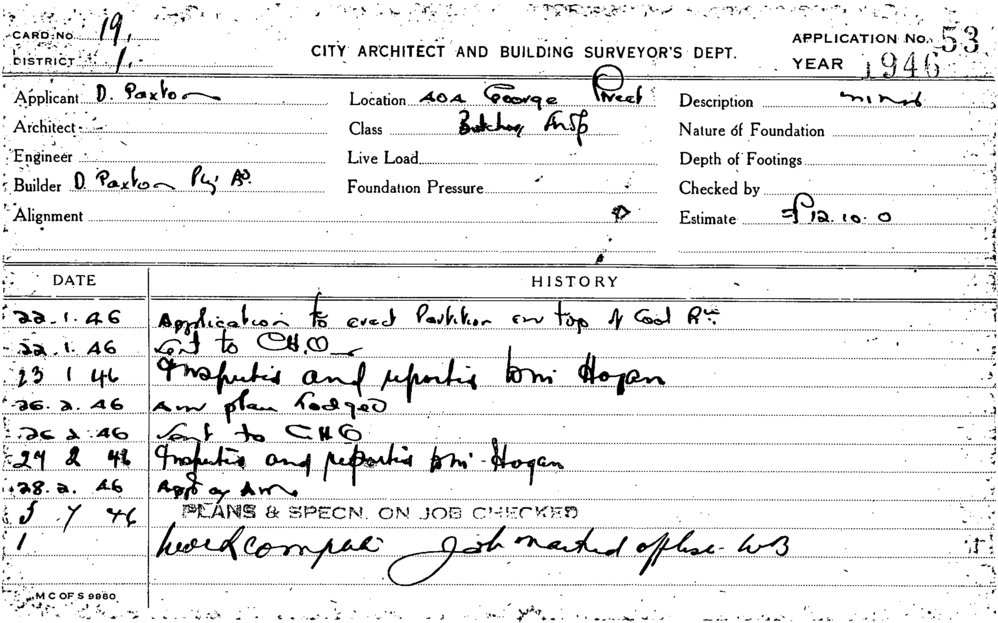 CARD No. 19.
DISTRICT 1.
CITY ARCHITECT AND BUILDING SURVEYOR'S DEPT.
APPLICATION No. 53
YEAR 1946
Applicant D. Paxton
Location 40A George Street
Description
Architect
Class Butchery
Nature of Foundation
Engineer
Live Load
Depth of Footings
Builder D. Paxton Pty
Foundation Pressure
Checked by
Alignment
Estimate £12.10.0
DATE HISTORY
22.1.46 Application to erect Partition on top of Cool Rm
22.1.46 Sent to C.H.O.
23 1 46 Inspection and reports Hogan
26.2.46 plan Lodged
26 2 46 Sent to C H O
27 2 46 Inspection and reports Hogan
28.2.46 App
5 7 46 PLANS & SPECN. ON JOB CHECKED
1 Work complete Job marked off WB
M C OF S 9980